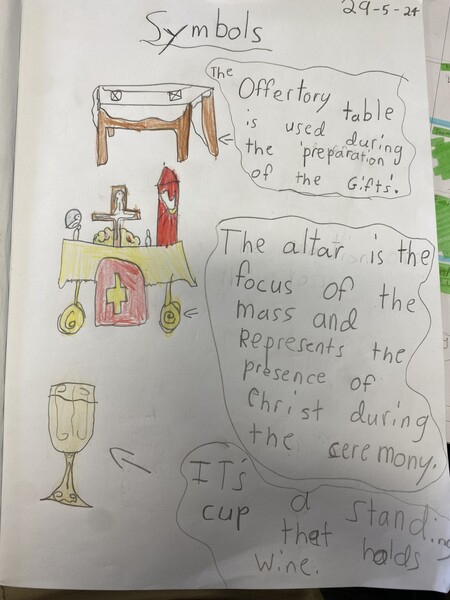 29-5-24
Symbols
The
Offertory table
is used during
the preparation
of the Gifts.
The altar is the
focus of the
mass and
Represents the
presence of
Christ during
the ceremony.
IT's a standing
cup that holds
wine.